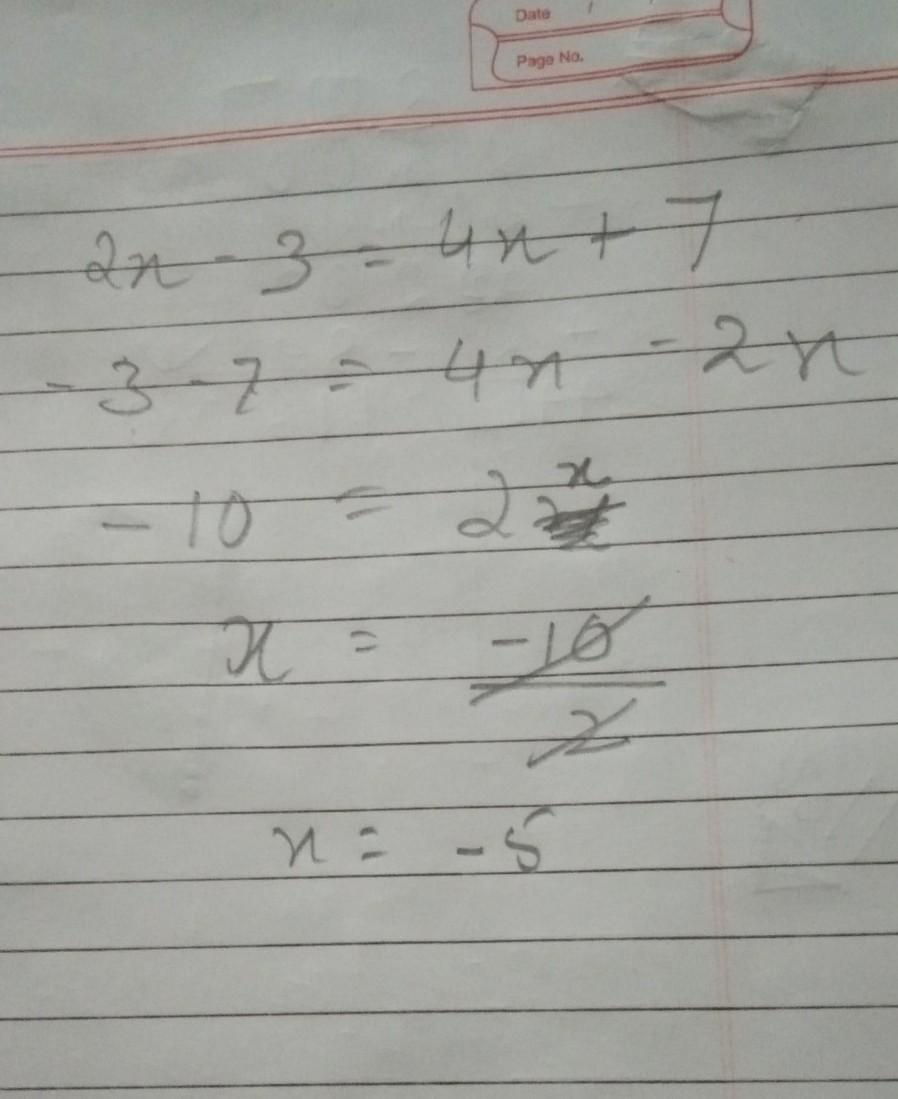 Date / /
Page No.
2x - 3 = 4x + 7
- 3 - 7 = 4x - 2x
- 10 = 2x
x = -10/2
x = -5